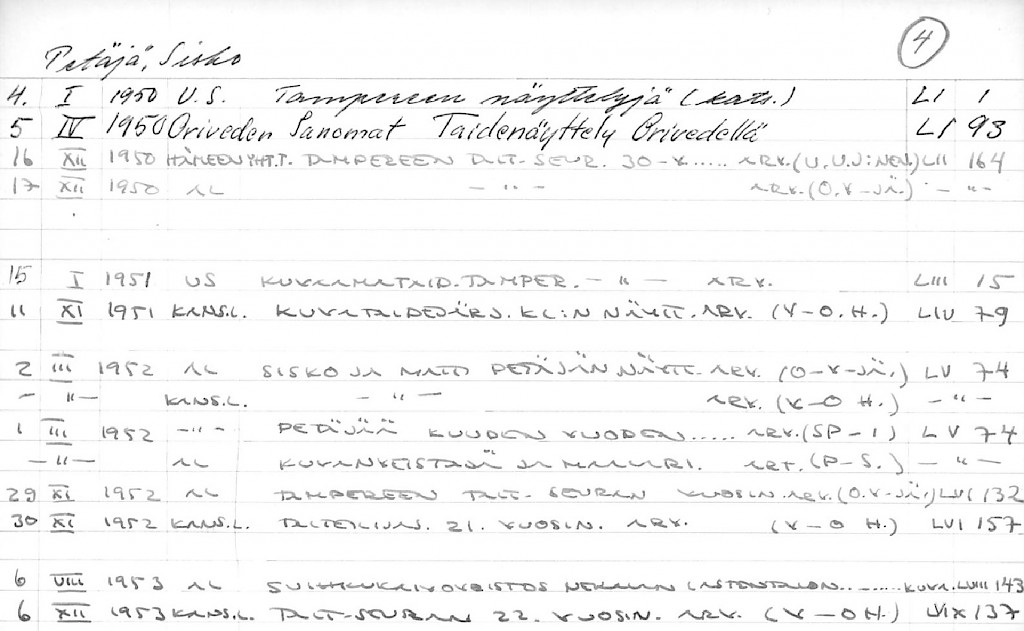 4
Petäjä, Sisko
4. I 1950 U.S. Tampereen näyttelyjä (kats.) LI 1
5 IV 1950 Oriveden Sanomat Taidenäyttely Orivedellä LI 93
16 XII 1950 HÄMEEN YHT.T. TAMPEREEN TAIT-SEUR. 30-V..... ARV. (U.U.J:NEN.) LII 164
17 XII 1950 AL - " - ARV. (O.V-JÄ.) - " -
15 I 1951 US KUVAAMATAID. TAMPER. - " - ARV. LIII 15
11 XI 1951 KANS.L. KUVATAIDEJÄRJ. KL:N NÄYTT. ARV. (V-O.H.) LIV 79
2 III 1952 AL SISKO JA MATTI PETÄJÄN NÄYTT. ARV. (O-V-JÄ.) LV 74
- " - KANS.L. - " - ARV. (V-O H.) - " -
1 III 1952 - " - PETÄJÄÄ KUUDEN VUODEN..... ARV. (SP-I) LV 74
- " - AL KUVANVEISTÄJÄ JA MAALARI. ART. (P-S.) - " -
29 XI 1952 AL TAMPEREEN TAIT-SEURAN VUOSIN. ARV. (O.V-JÄ.) LVI 132
30 XI 1952 KANS.L. TAITEILIJAS. 21. VUOSIN. ARV. (V-O H.) LVI 157
6 VIII 1953 AL SUIHKUKAIVOVEISTOS NEKALAN LASTENTALON......... KUVA. LVIII 143
6 XII 1953 KANS.L. TAIT-SEURAN 22. VUOSIN. ARV. (V-O H.) LVIX 137